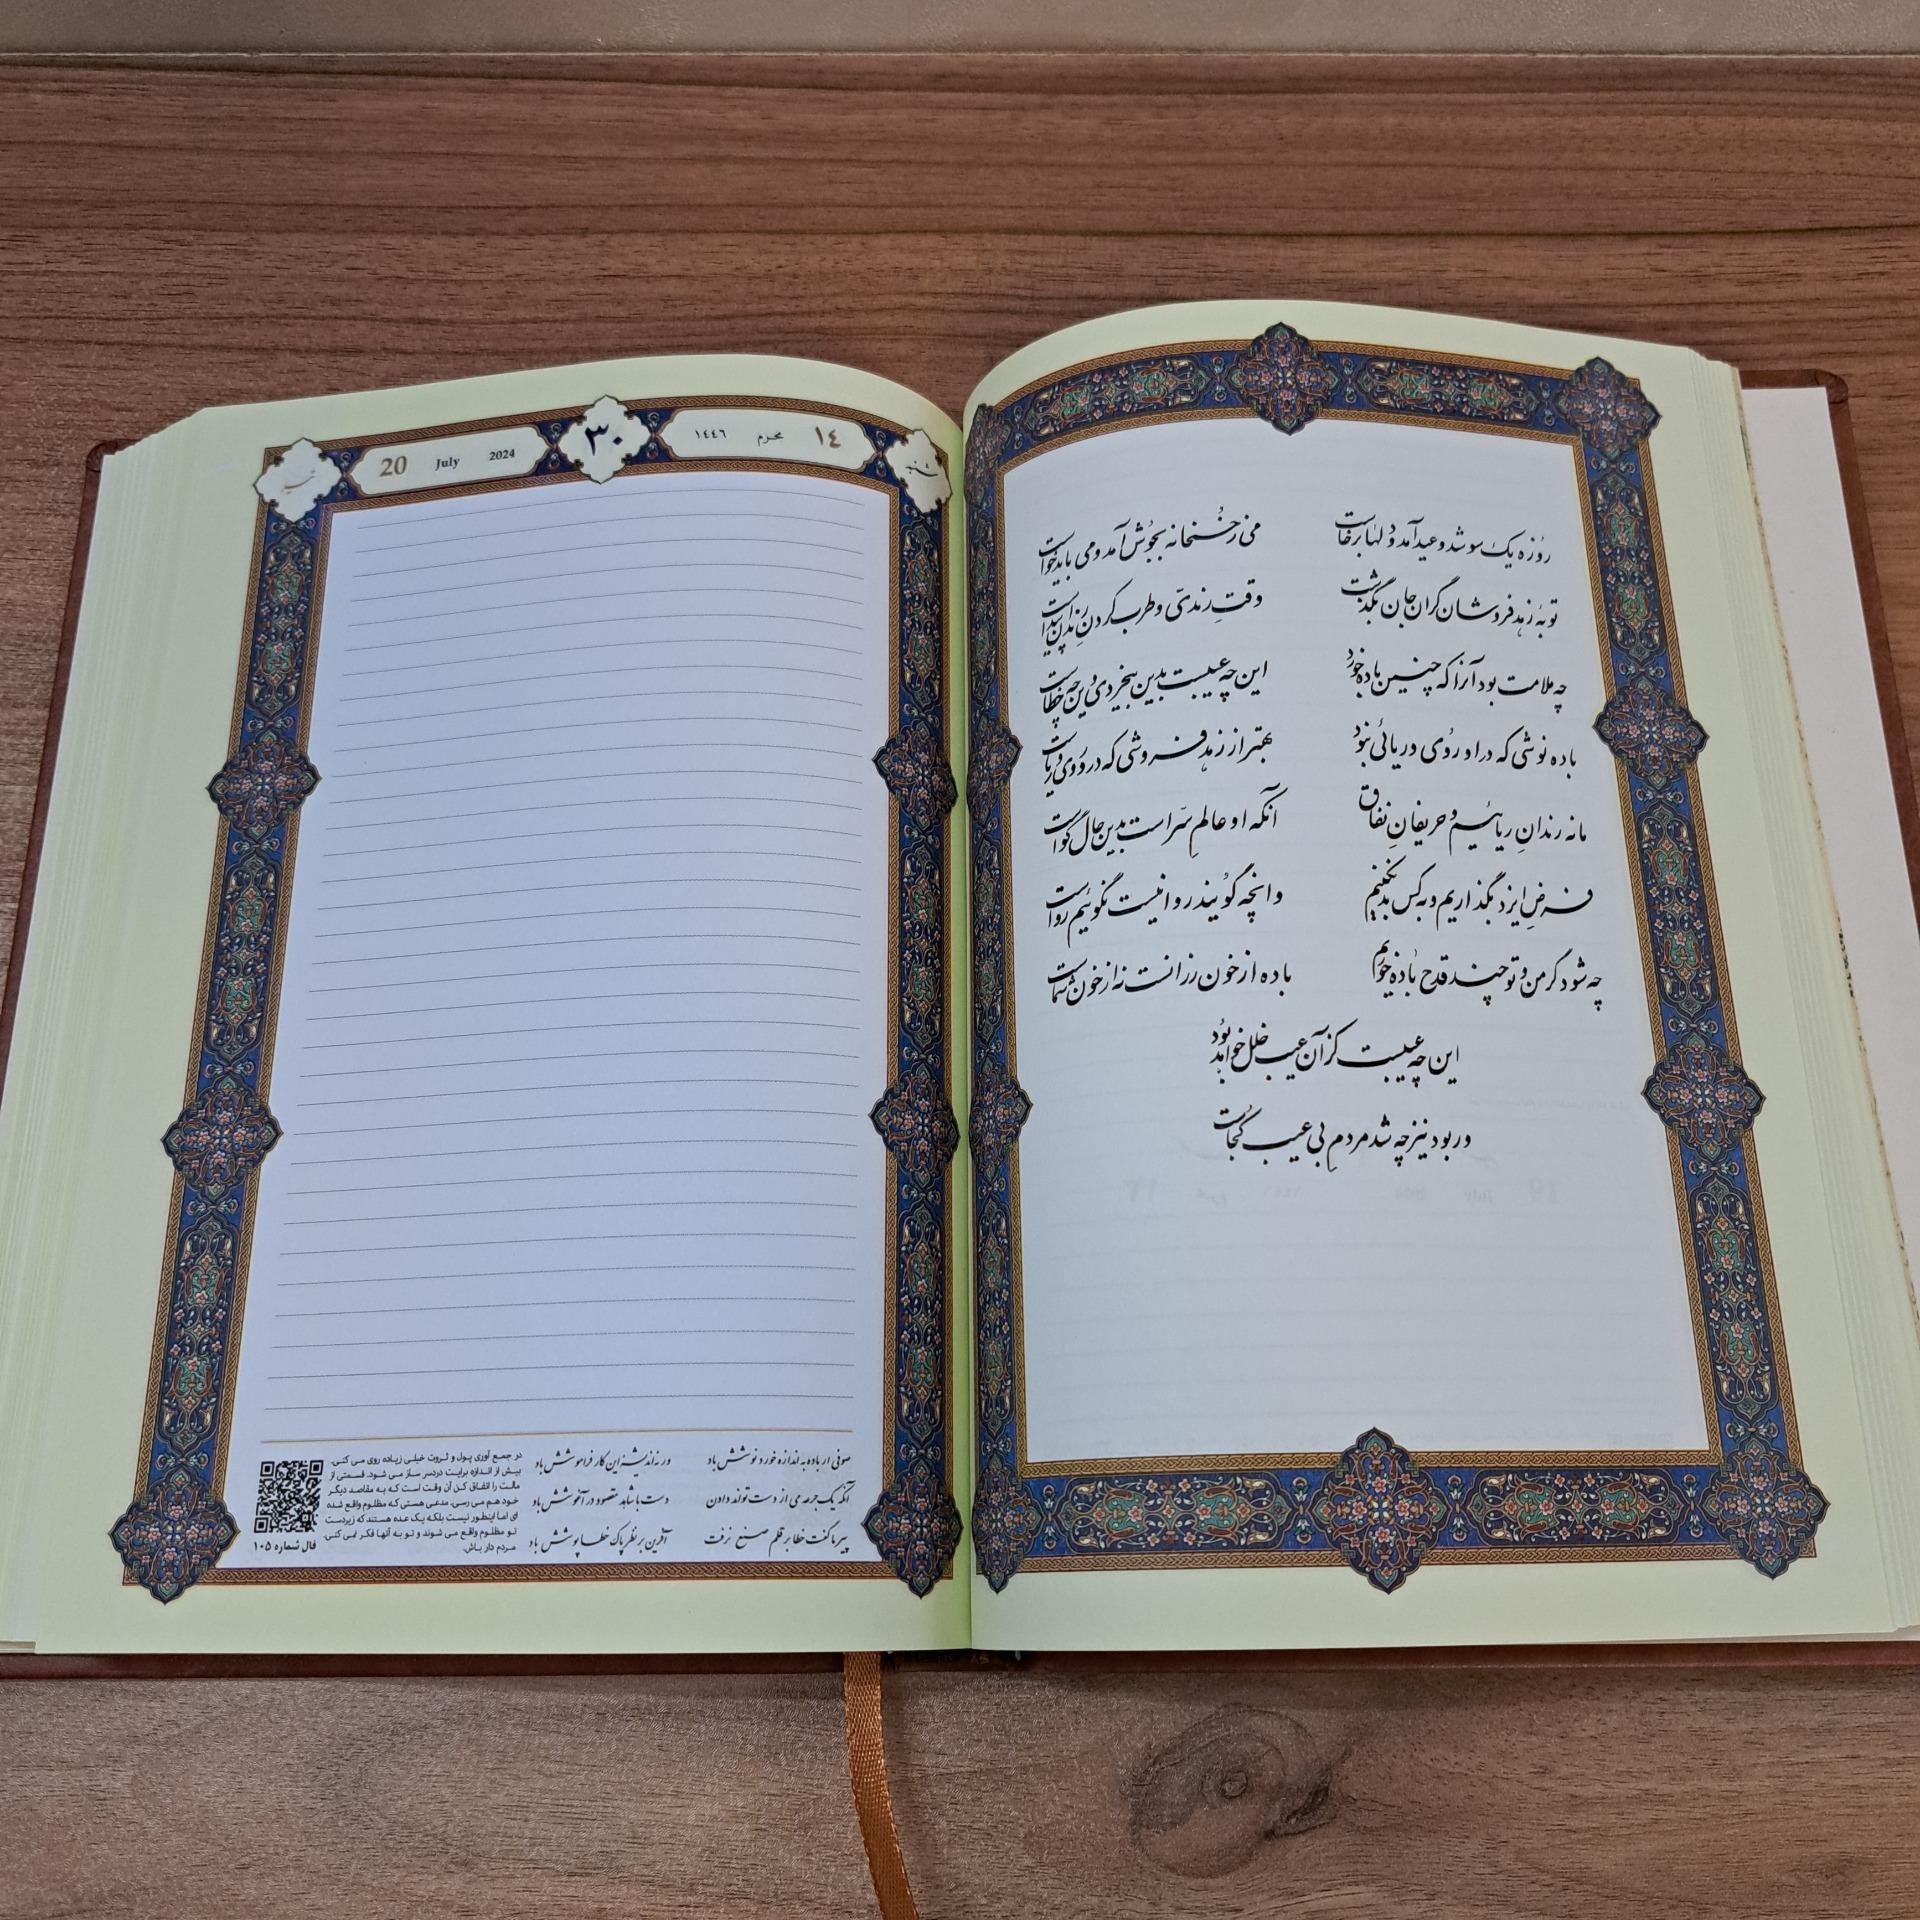 روزه یک سو شد و عید آمد و دلها برخاست
می ز خمخانه بجوش آمد و می باید خواست
توبهٔ زهد فروشان گران جان بگذشت
وقتِ رندی و طرب کردن رندان پیداست
چه ملامت بود آنرا که چنین باده خورد
این چه عیبست بدین بیخردی وین چه خطاست
باده نوشی که در او روی و ریائی نبود
بهتر از زهد فروشی که در او روی و ریاست
ما نه رندانِ ریائیم و حریفانِ نفاق
آنکه او عالمِ سرّ است بدین حال گواست
فرضِ ایزد بگذاریم و به کس بد نکنیم
وانچه گویند روا نیست نگوئیم رواست
چه شود گر من و تو چند قدح باده خوریم
باده از خون رزانست نه از خون شماست
این چه عیبست کزآن عیب خلل خواهد بود
ور بود نیز چه شد مردمِ بی عیب کجاست
شنبه
١٤ محرم ١٤٤٦
٣٠
20 July 2024
تیر
صوفی ار باده به اندازه خورد نوشش باد
ورنه اندیشهٔ این کار فراموشش باد
آنکه یک جرعه می از دست تواند دادن
دست با شاهد مقصود در آغوشش باد
پیر ما گفت خطا بر قلم صنع نرفت
آفرین بر نظر پاک خطا پوشش باد
در جمع آوری پول و ثروت خیلی زیاده روی می کنی.
بیش از اندازه برایت دردسر ساز می شود. قسمتی از
مالت را انفاق کن آن وقت است که به مقاصد دیگر
خود هم می رسی. مدعی هستی که مظلوم واقع شده
ای اما اینطور نیست بلکه یک عده هستند که زیردست
تو مظلوم واقع می شوند و تو به آنها فکر نمی کنی.
مردم دار باش.
فال شماره ۱۰۵